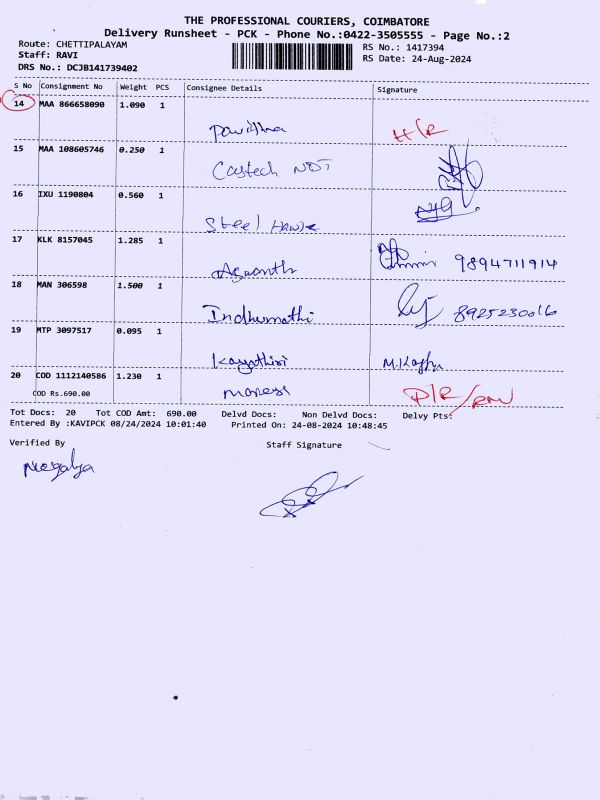 THE PROFESSIONAL COURIERS, COIMBATORE
Delivery Runsheet - PCK - Phone No.:0422-3505555 - Page No.:2
Route: CHETTIPALAYAM RS No.: 1417394
Staff: RAVI RS Date: 24-Aug-2024
DRS No.: DCJB141739402
S No Consignment No Weight PCS Consignee Details Signature
14 MAA 866658090 1.090 1
Pavithra H/R
15 MAA 108605746 0.250 1
Castech NDT
16 IXU 1190804 0.560 1
Steel
17 KLK 8157045 1.285 1
Aswanth 9894711914
18 MAN 306598 1.500 1
Indhumathi 8925230016
19 MTP 3097517 0.095 1
Kayathiri
20 COD 1112140586 1.230 1
COD Rs.690.00
Tot Docs: 20 Tot COD Amt: 690.00 Delvd Docs: Non Delvd Docs: Delvy Pts:
Entered By :KAVIPCK 08/24/2024 10:01:40 Printed On: 24-08-2024 10:48:45
Verified By Staff Signature